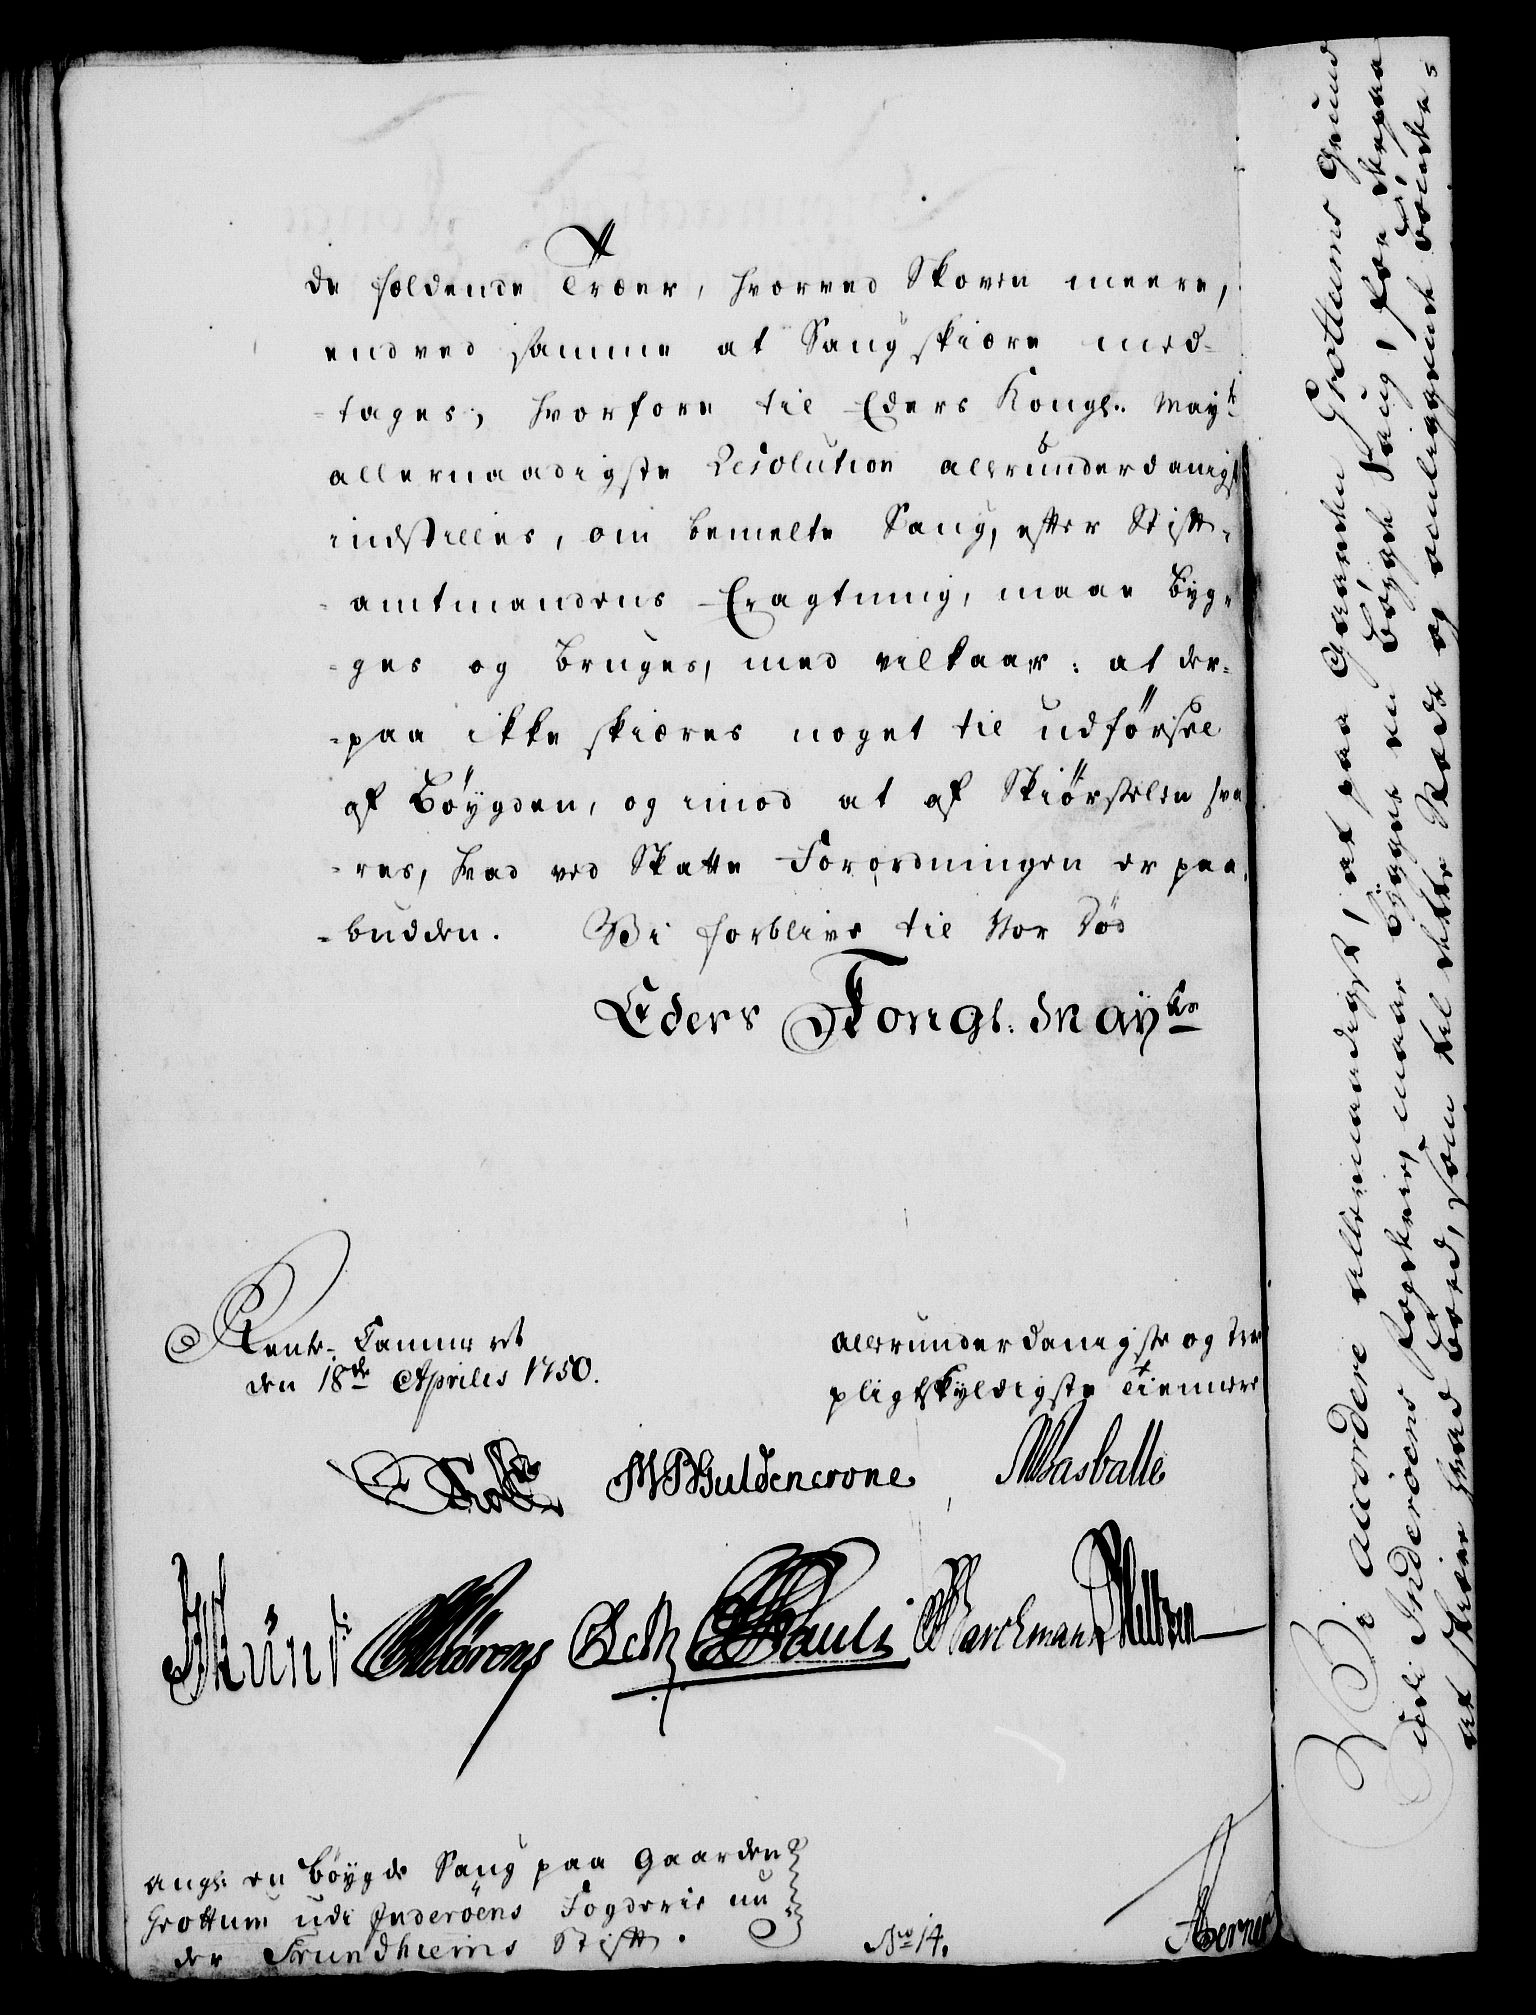 de fældende Træer, hvorved Skoven meere,
end ved samme at Saugskiære med-
-tages; hvorfore til Eders Kongl. May.ts
allernaadigste Resolution allerunderdanigst
indstilles, om bemelte Saug, efter Stift-
-amtmandens Eragtning, maae byg-
-ges og bruges, med vilkaar: at der-
-paa ikke skiæres noget til udførsel
af Bøygden, og imod at af Skiørselen sva-
-res, hvad ved Skatte Forordningen er paa-
-budden. Vi forblive til Vor Død
Eders Kongl. May.ts
Rente-Cammeret
den 18de Aprilis 1750.
allerunderdanigste og troe
pligtskyldigste Tiennere
M P Guldencrone
Masballe
Pauli
Barchmann
Angl: en bøygde Saug paa Gaarden
Grottum udi Inderøens Fogderie un-
der Trundhiems Stift.
No 14.
Vi accordere allernaadigst, at paa Gaarden Grottums Grund
udi Inderøens Fogderie, maae bygges en bøygde Saug, for derpaa
at skiære hvad Bord, som til dette Stæds og omliggende Bøyders